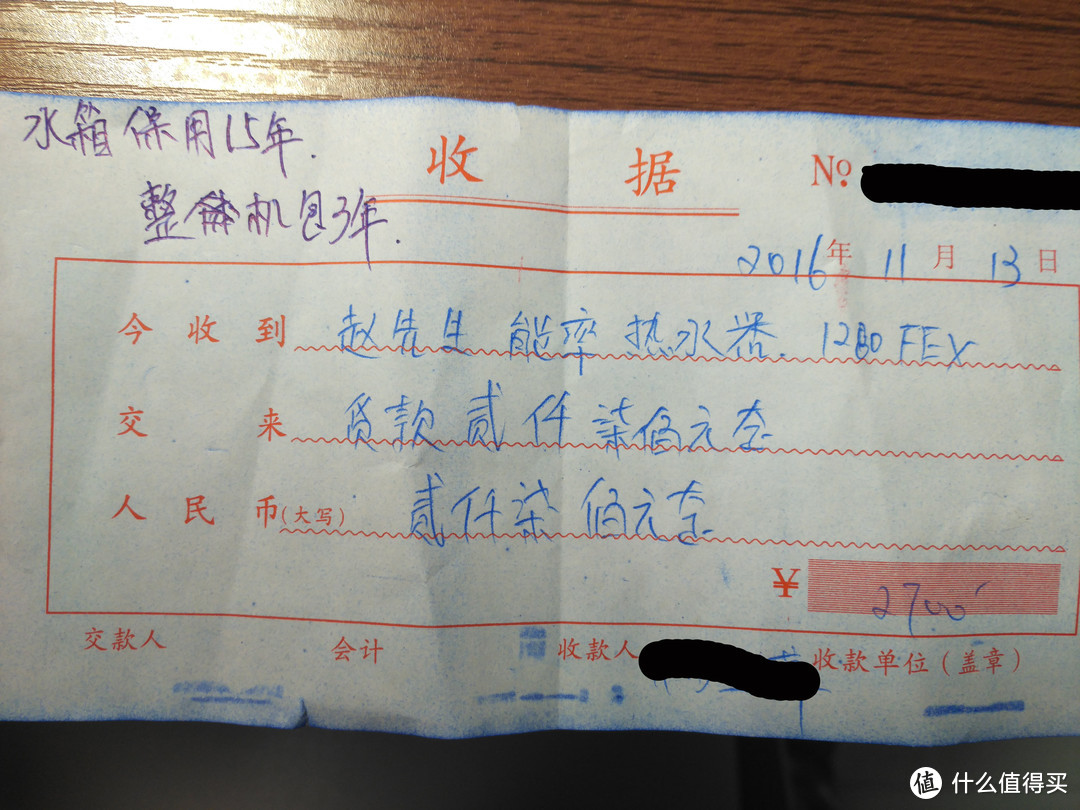 水箱保用15年.
整体机包3年.
收据 №
2016年11月13日
今收到 赵先生 能率热水器. 1280FEX
交来 货款贰仟柒佰元全
人民币(大写) 贰仟柒佰元全
¥ 2700
交款人 会计 收款人 收款单位(盖章)
值 什么值得买